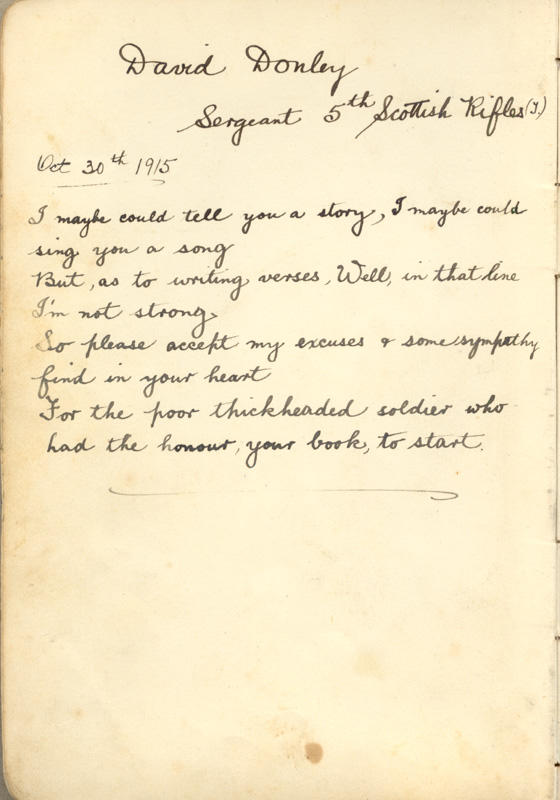 David Donley
Sergeant 5th Scottish Rifles (T.)
Oct 30th 1915
I maybe could tell you a story, I maybe could
sing you a song
But, as to writing verses, Well, in that line
I'm not strong,
So please accept my excuses & some sympathy
find in your heart
For the poor thickheaded soldier who
had the honour, your book, to start.